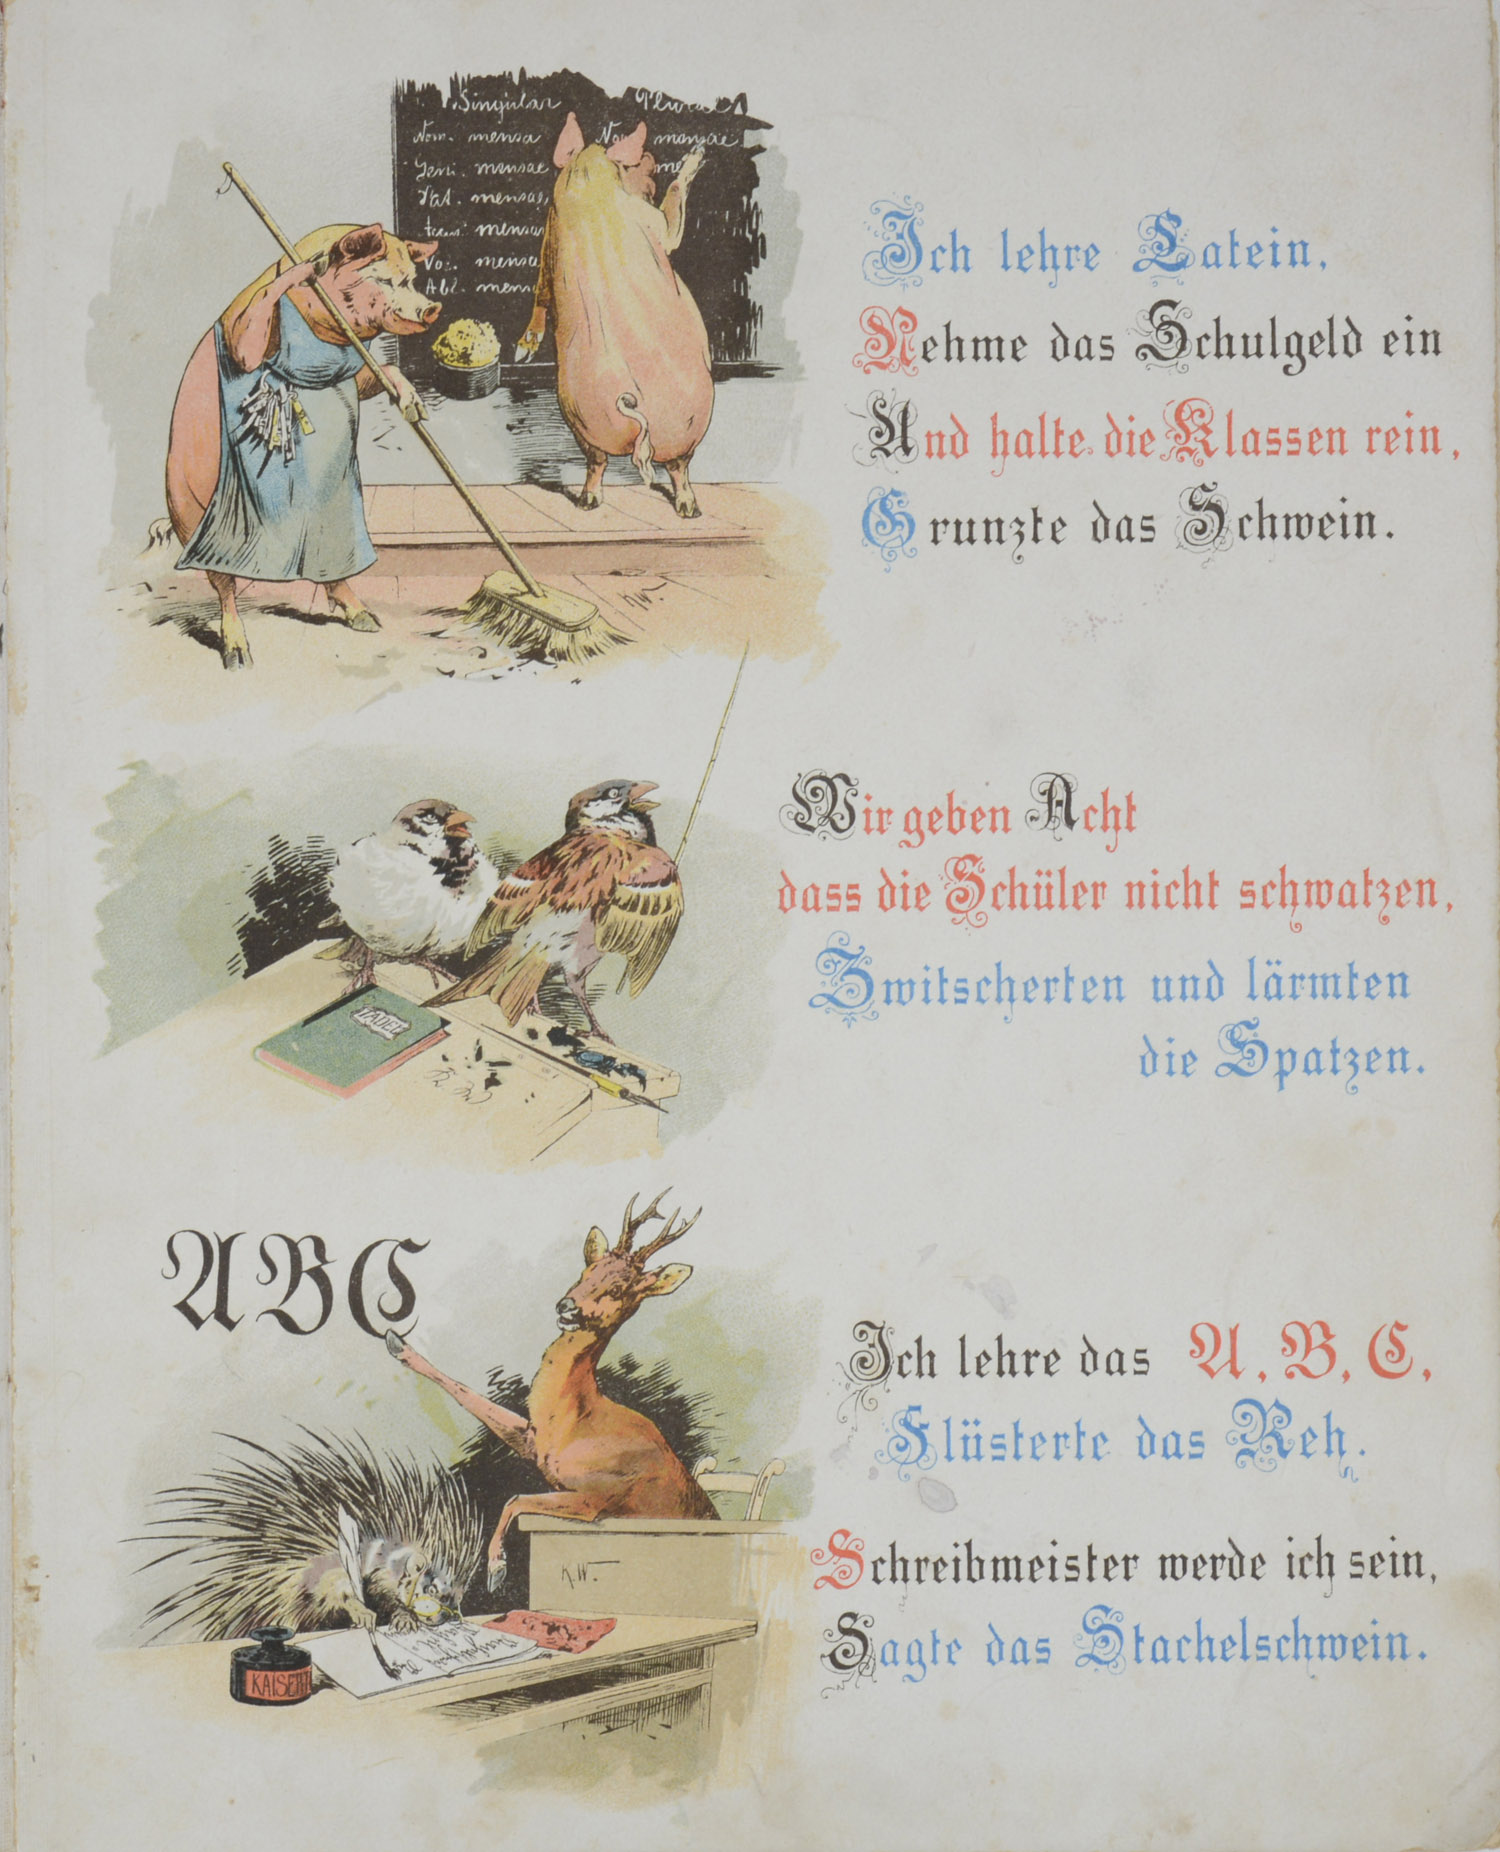 Singular Plural
Nom. mensa Nom. mensae
Gen. mensae
Dat. mensae
mensa
Abl.
Ich lehre Latein,
Nehme das Schulgeld ein
Und halte die Klassen rein,
Grunzte das Schwein.
Wir geben Acht
dass die Schüler nicht schwatzen,
Zwitscherten und lärmten
die Spatzen.
TADEL
ABC
Ich lehre das A, B, C,
Flüsterte das Reh.
K.W.
Schreibmeister werde ich sein,
Sagte das Stachelschwein.
KAISERT